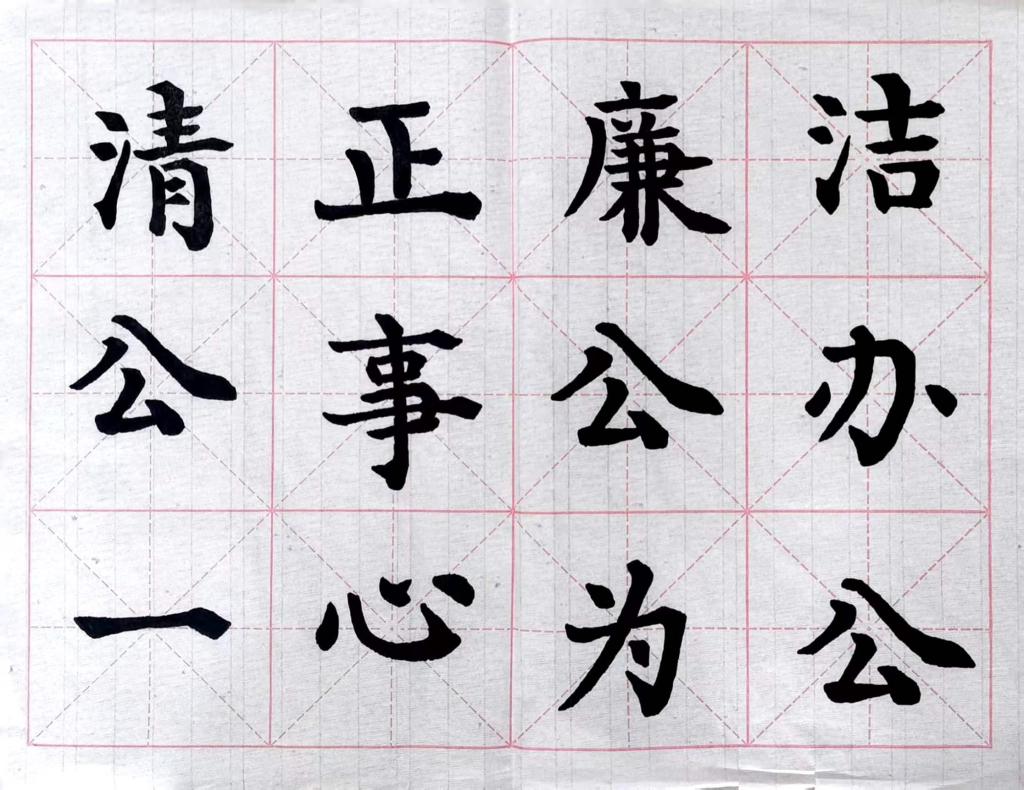 清正廉洁
公事公办
一心为公